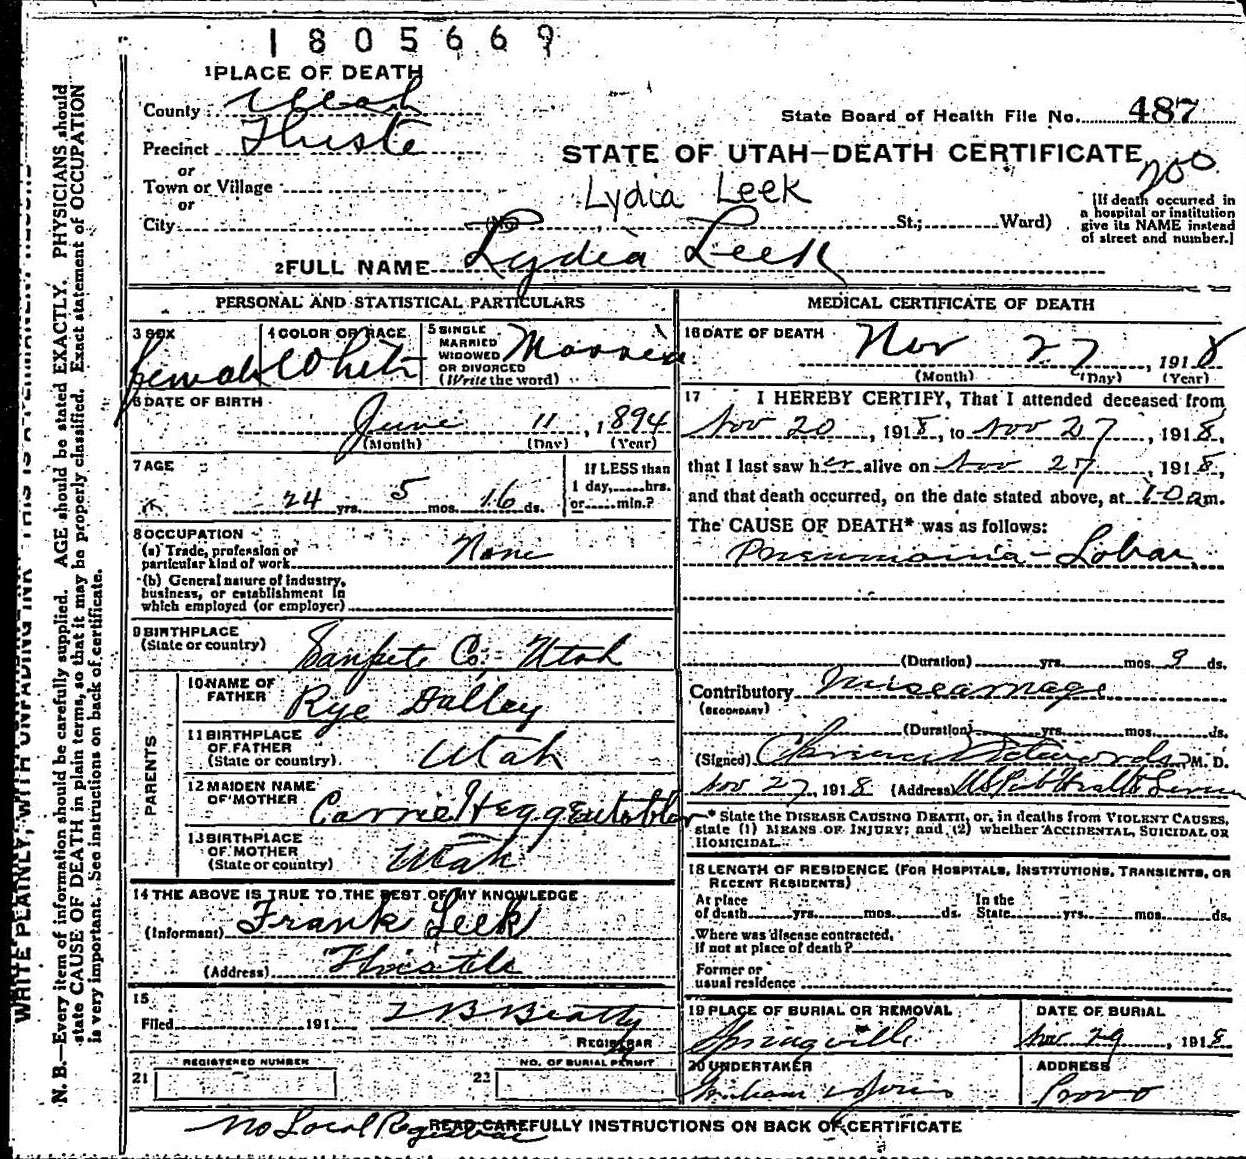 1805669
1 PLACE OF DEATH
County Utah
State Board of Health File No. 487
Precinct Thistle
STATE OF UTAH—DEATH CERTIFICATE
or
200
Town or Village
Lydia Leek
or
City (No. St.; Ward)
[If death occurred in
a hospital or institution
give its NAME instead
of street and number.]
2 FULL NAME Lydia Leek
PERSONAL AND STATISTICAL PARTICULARS
3 SEX female
4 COLOR OR RACE White
5 SINGLE
MARRIED
WIDOWED
OR DIVORCED
(Write the word) Married
6 DATE OF BIRTH
June 11, 1894
(Month) (Day) (Year)
7 AGE
24 yrs. 5 mos. 16 ds.
If LESS than
1 day, hrs.
or min.?
8 OCCUPATION
(a) Trade, profession or
particular kind of work None
(b) General nature of industry,
business, or establishment in
which employed (or employer)
9 BIRTHPLACE
(State or country) Sanpete Co. Utah
PARENTS
10 NAME OF
FATHER Rye Dalley
11 BIRTHPLACE
OF FATHER
(State or country) Utah
12 MAIDEN NAME
OF MOTHER Carrie
13 BIRTHPLACE
OF MOTHER
(State or country) Utah
14 THE ABOVE IS TRUE TO THE BEST OF MY KNOWLEDGE
(Informant) Frank Leek
(Address) Thistle
15
Filed 191 T B Beatty
REGISTRAR
REGISTERED NUMBER
21
NO. OF BURIAL PERMIT
22
MEDICAL CERTIFICATE OF DEATH
16 DATE OF DEATH Nov 27, 1918
(Month) (Day) (Year)
17 I HEREBY CERTIFY, That I attended deceased from
Nov 20, 1918, to Nov 27, 1918,
that I last saw her alive on Nov 27, 1918,
and that death occurred, on the date stated above, at 10 am.
The CAUSE OF DEATH* was as follows:
Pneumonia - Lobar
(Duration) yrs. mos. 9 ds.
Contributory Miscarriage
(SECONDARY)
(Duration) yrs. mos. ds.
(Signed) M. D.
Nov 27, 1918 (Address) US Pub Health Service
* State the DISEASE CAUSING DEATH, or, in deaths from VIOLENT CAUSES,
state (1) MEANS OF INJURY; and (2) whether ACCIDENTAL, SUICIDAL OR
HOMICIDAL.
18 LENGTH OF RESIDENCE (FOR HOSPITALS, INSTITUTIONS, TRANSIENTS, OR
RECENT RESIDENTS)
At place
of death yrs. mos. ds.
In the
State yrs. mos. ds.
Where was disease contracted,
if not at place of death?
Former or
usual residence
19 PLACE OF BURIAL OR REMOVAL
Springville
DATE OF BURIAL
Nov 29, 1918
20 UNDERTAKER
ADDRESS
Provo
No Local Registrar
READ CAREFULLY INSTRUCTIONS ON BACK OF CERTIFICATE
N. B.—Every item of information should be carefully supplied. AGE should be stated EXACTLY. PHYSICIANS should
state CAUSE OF DEATH in plain terms, so that it may be properly classified. Exact statement of OCCUPATION
is very important. See instructions on back of certificate.
WRITE PLAINLY, WITH UNFADING INK